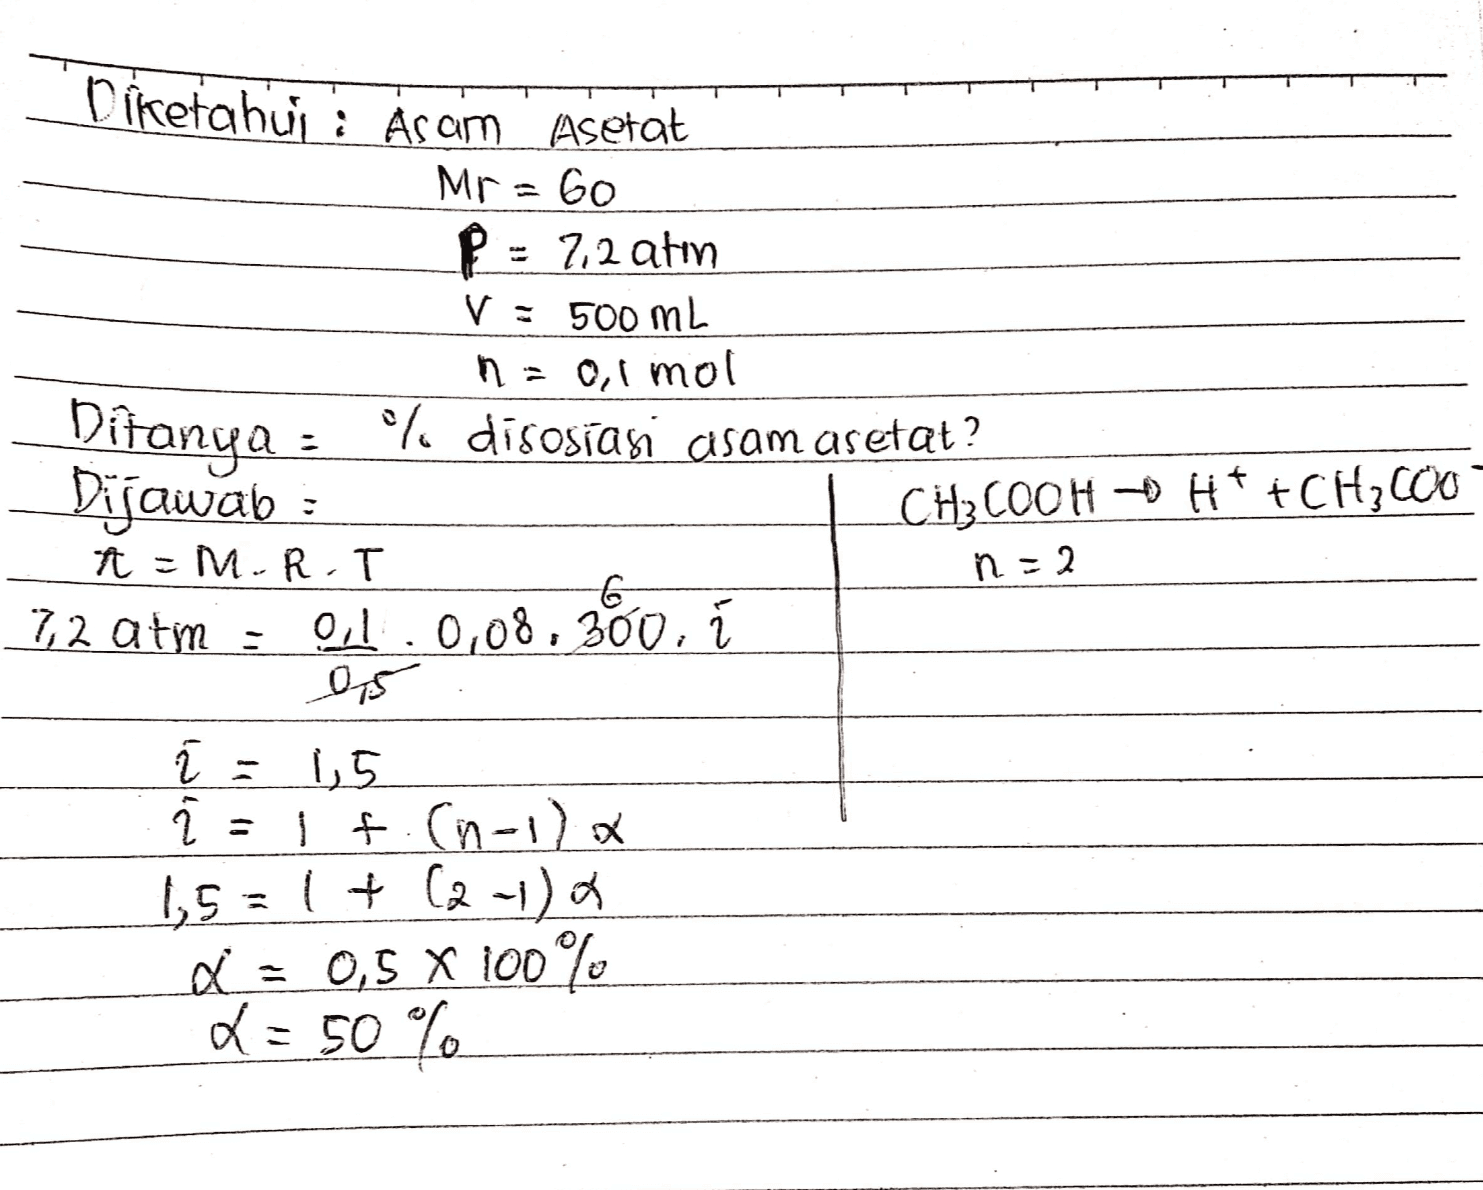 Diketahui : Asam Asetat
Mr = 60
P = 7,2 atm
V = 500 mL
n = 0,1 mol
Ditanya = % disosiasi asam asetat?
Dijawab =
π = M . R . T
7,2 atm = 0,1/0,5 . 0,08 . 300 . i
6
i = 1,5
i = 1 + (n-1) α
1,5 = 1 + (2-1) α
α = 0,5 x 100 %
α = 50 %
CH₃COOH → H⁺ + CH₃COO⁻
n = 2